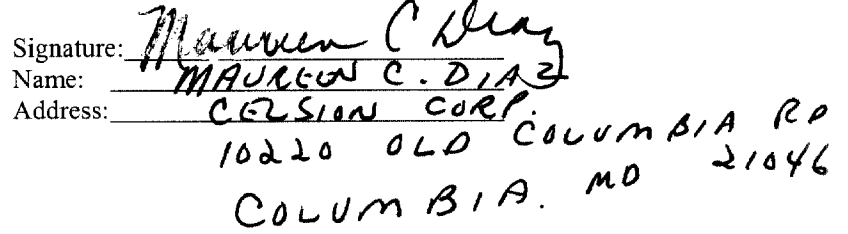 Signature: Maureen C Diaz
Name: MAUREEN C. DIAZ
Address: CELSION CORP.
10220 OLD COLUMBIA RD
COLUMBIA. MD 21046